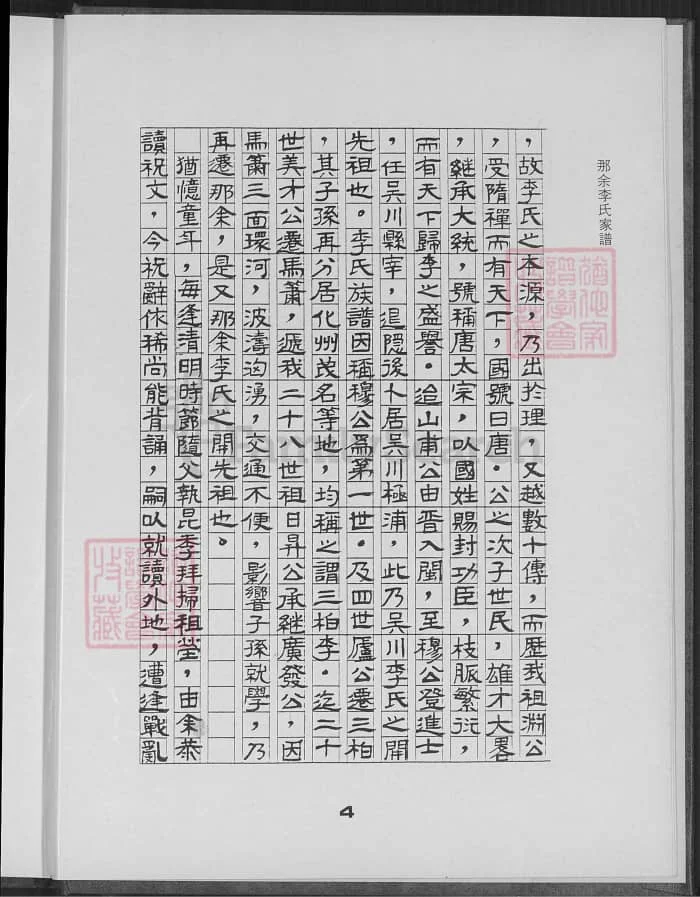 那余李氏家譜
，故李氏之本源，乃出於理，又越數十傳，而歷我祖淵公
，受隋禪而有天下，國號曰唐。公之次子世民，雄才大畧
，繼承大統，號稱唐太宗，以國姓賜封功臣，枝脈繁衍，
而有天下歸李之盛譽。迨山甫公由晋入閩，至穆公登進士
，任吴川縣宰，退隱後卜居吴川極浦，此乃吴川李氏之開
先祖也。李氏族譜因稱穆公爲第一世。及四世廬公遷三柏
，其子孫再分居化州茂名等地，均稱之謂三柏李。迄二十
世美才公遷馬蕭，遞我二十八世祖日昇公承継廣發公，因
馬蕭三面環河，波濤汹湧，交通不便，影響子孫就學，乃
再遷那余，是又那余李氏之開先祖也。
猶憶童年，每逢清明時節隨父執昆季拜掃祖塋，由余恭
讀祝文，今祝辭依稀尚能背誦，嗣以就讀外地，遭逢戰亂
4